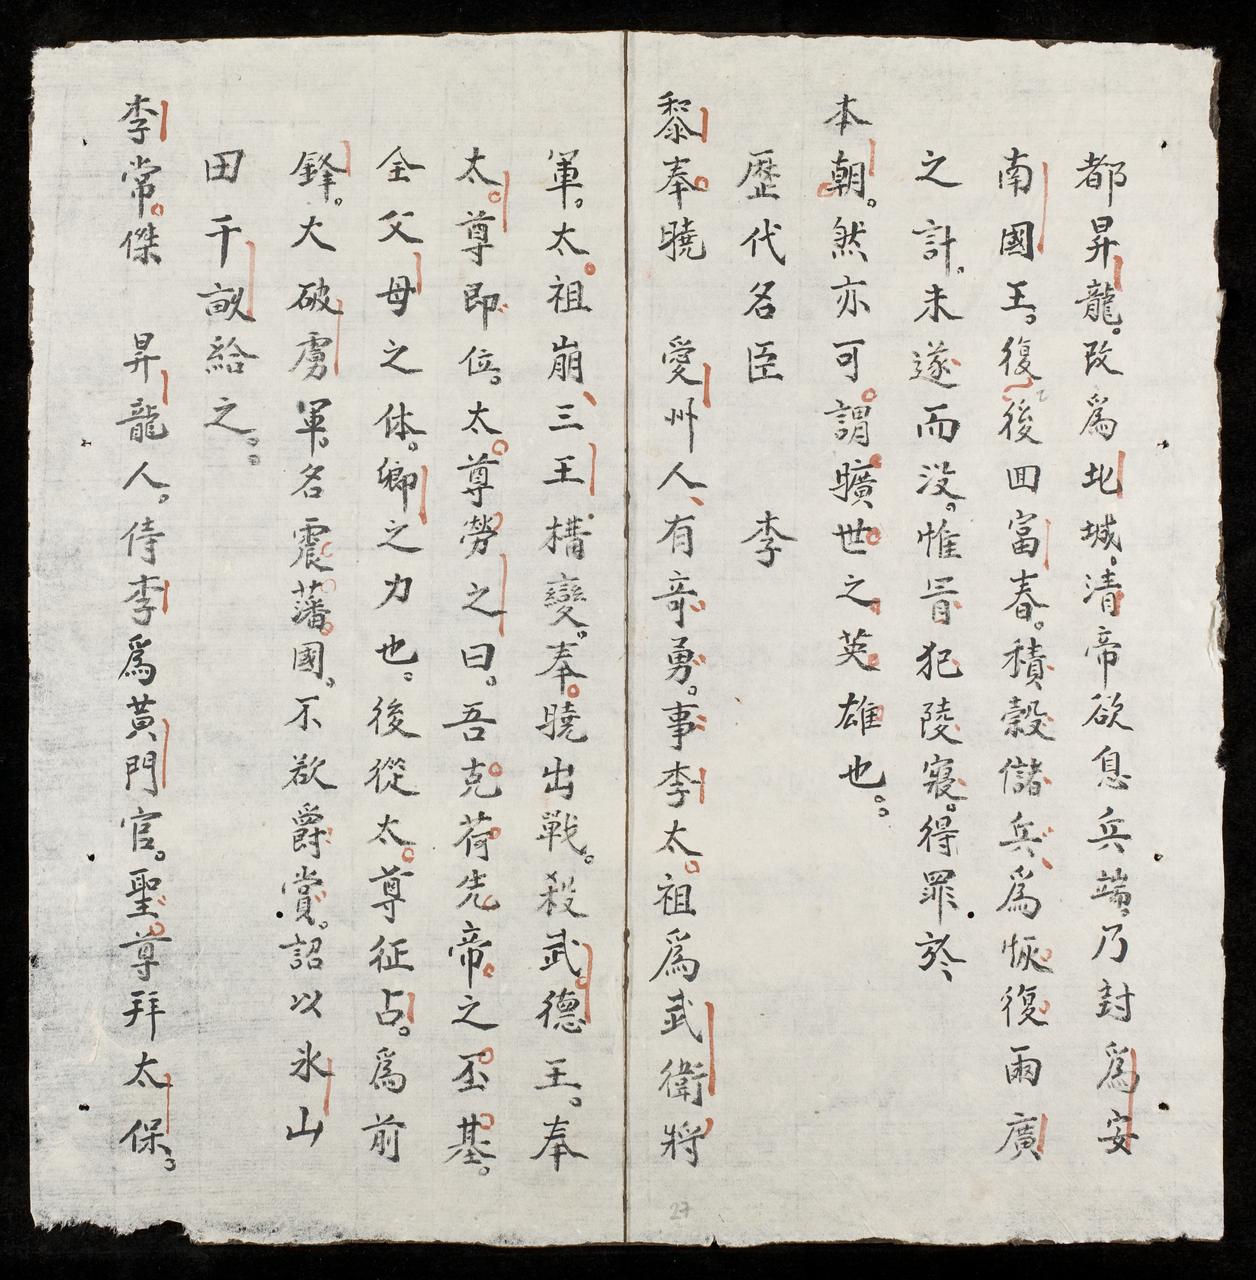 都昇龍。改爲北城。清帝欲息兵端、乃封爲安
南國王。復後回富春。積穀儲兵、爲恢復兩廣
之計、未遂而没。惟冒犯陵寢。得罪於、
本朝。然亦可謂曠世之英雄也。
歷代名臣 李
黎奉曉 愛州人、有奇勇。事李太祖爲武衛將
軍。太祖崩、三王構變。奉曉出戰。殺武德王。奉
太尊即位。太尊勞之曰。吾克荷先帝之丕基。
全父母之体。卿之力也。後從太尊征占。爲前
鋒。大破虜軍、名震藩國。不欲爵賞。詔以氷山
田千畝給之。
李常傑 昇龍人。侍李爲黃門官。聖尊拜太保。
27